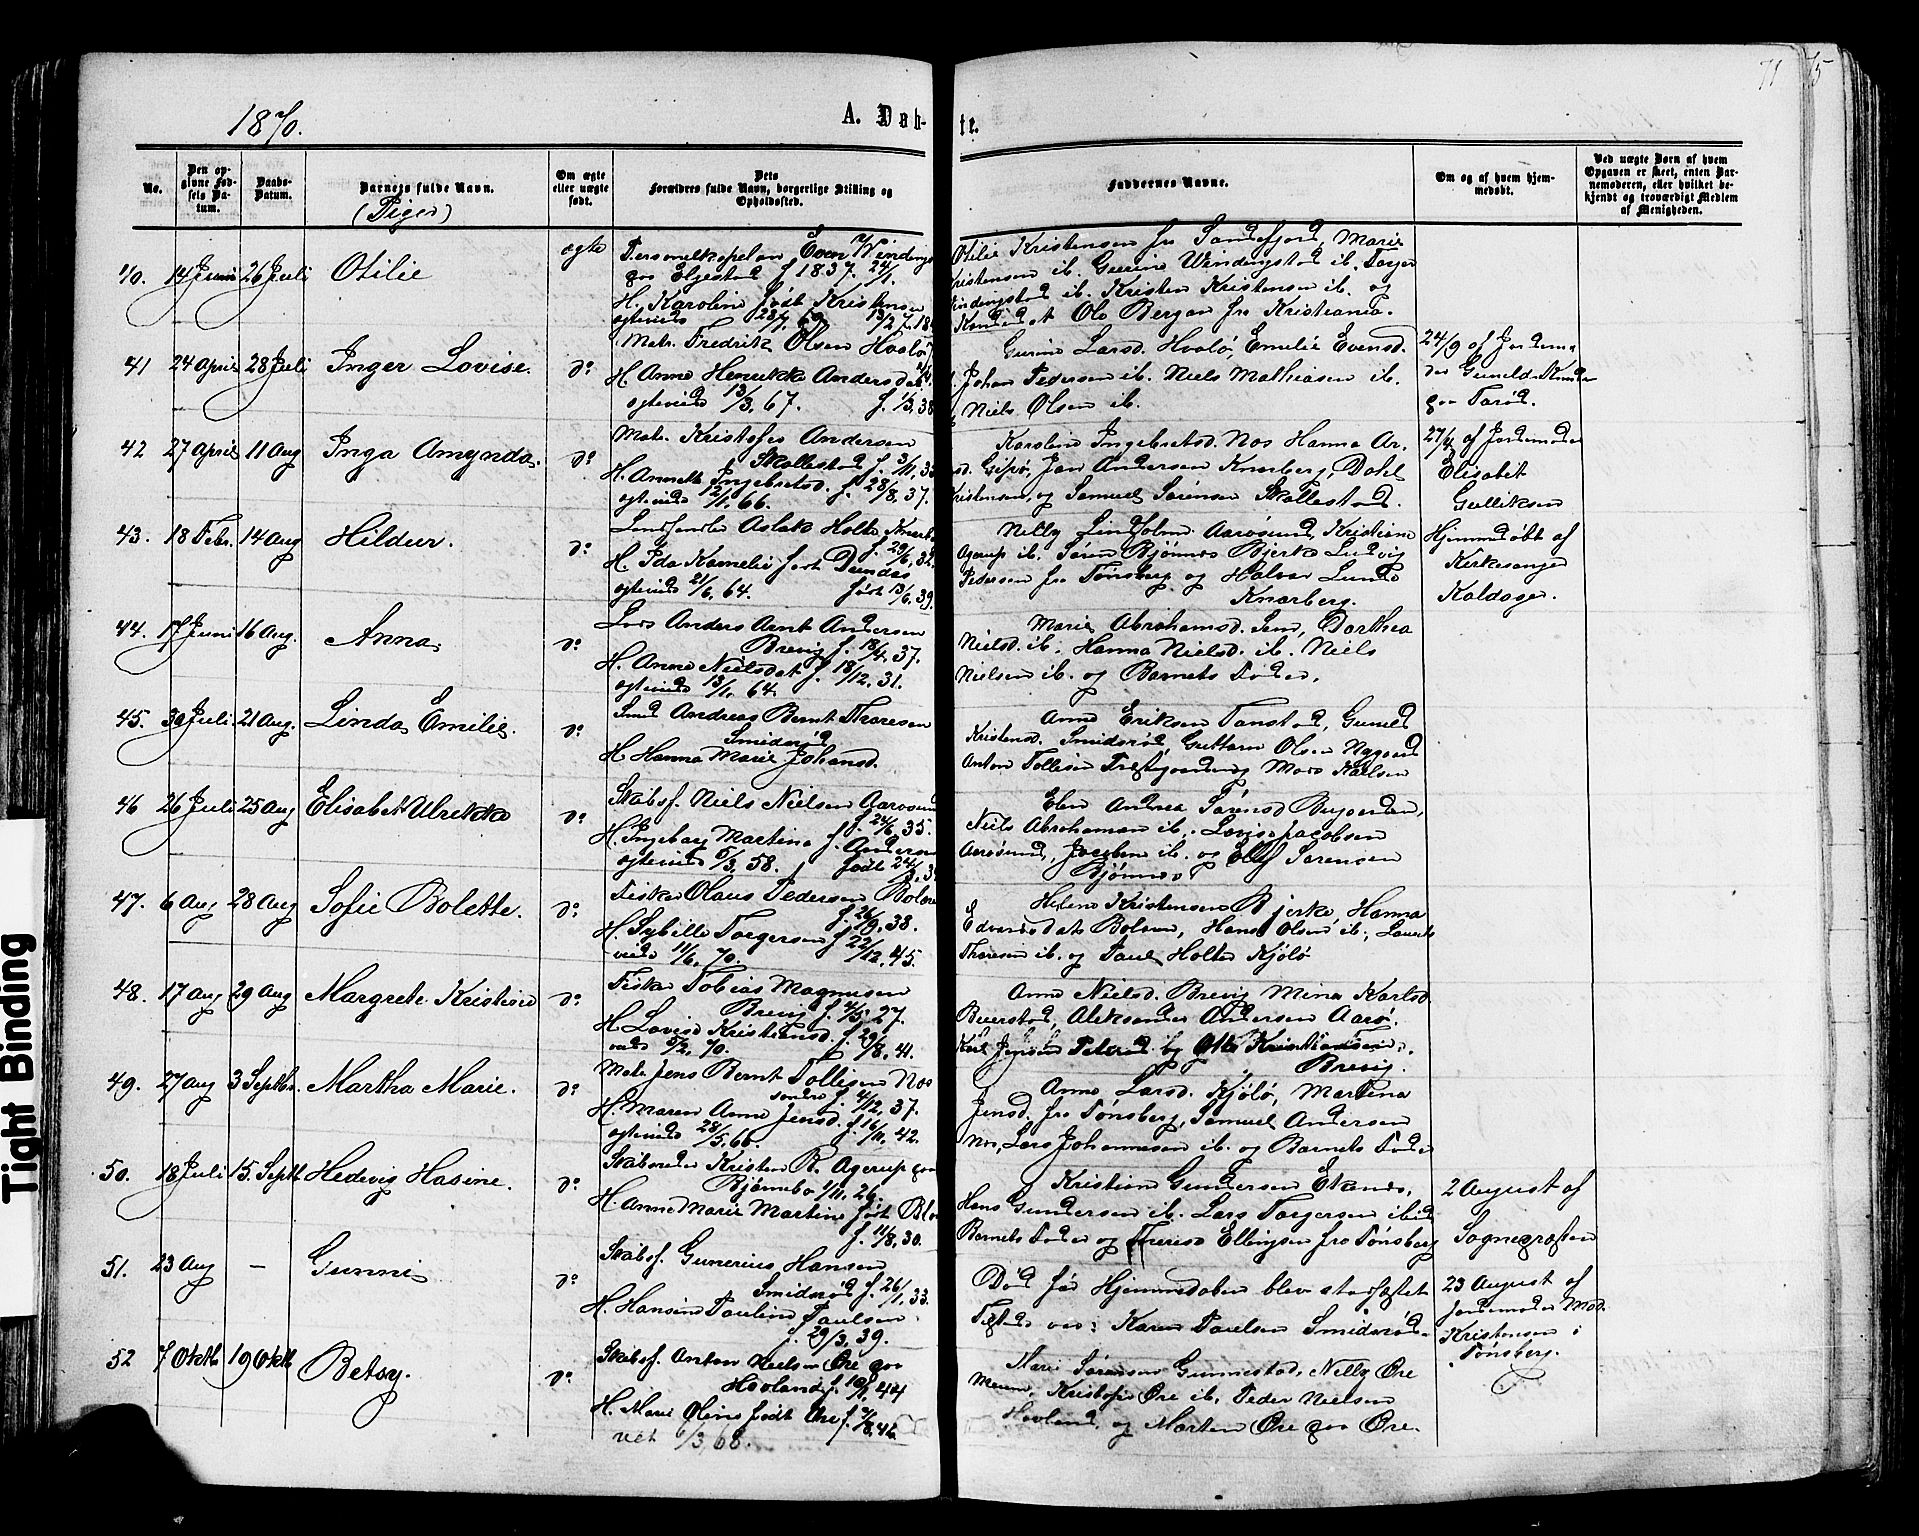 71 75
1870.
A. Døb-
te.
No.
Den op-
givne Fød-
sels Da-
tum.
Daabs-
Datum.
Barnets fulde Navn.
(Piger)
Om ægte
eller uægte
født.
Dets
Forældres fulde Navn, borgerlige Stilling og
Opholdssted.
Faddernes Navne.
Om og af hvem hjem-
medøbt.
Ved uægte Børn af hvem
Opgaven er skeet, enten Bar-
nemoderen, eller hvilket be-
kjendt og troværdigt Medlem
af Menigheden.
40. 14 Juni 26 Juli Otilie ægte
Personelkapelan Even Windings
paa Elgestad f. 1837. 24/1.
H. Karoline født Kristensen
Otilie Kristensen fra Sandefjord, Marie
Kristensen ib. Gurine Windingstad ib. Torger
Windingstad ib. Kristen Kristensen ib. og
Kandidat Ole Bergan fra Kristiania.
41 24 April 28 Juli Inger Lovise. do
Matr. Fredrik Olsen Hvalø
H. Anne Henrikka Andersdat
ægteviede 13/3, 67. f. 1/3, 38
Gurine Larsd. Hvalø, Emelie Evensd.
Johan Pedersen ib. Niels Mathiasen ib.
Niels Olsen ib.
24/9 af Jordemo-
der Gunild Knuds
paa Tarød.
42 27 April 11 Aug Inga Amynda. do
Matr. Kristofer Andersen
Skallestad f. 3/11, 33
H. Annette Ingebretsd. f. 28/8, 37.
ægteviede 12/1, 66.
Karoline Ingebretsd. Nos Hanna An-
sd. Gipø, Jan Andersen Knarberg, Dahl
Kristensen, og Samuel Sørensen Skallestad.
27/4 af Jordemoder
Elisabet
Gulliksen
43. 18 Febr. 14 Aug Hildur. do
Landhandler Aslak Holte Knarb
f. 20/6, 32.
H. Ida Kamelie født Dundas
ægteviede 21/6, 64. født 13/6, 39.
Nilly Lindholm Aarøsund, Kristiane
Agerup ib. Søren Bjønnes Bjerke Ludvig
Pedersen fra Tønsberg og Halvor Lunde
Knarberg.
Hjemmedøbt af
Kirkesanger
Kaldager.
44. 17 Juni 16 Aug. Anna do
Lods Anders Arnt Andersen
Brevig f. 18/4, 37.
H. Anne Nielsdat f. 18/12, 31.
ægteviede 13/1, 64.
Marie Abrahamsd. Sem, Dorthea
Nielsd. ib. Hanna Nielsd. ib. Niels
Nielsen ib. og Barnets Fader.
45. 30 Juli. 21 Aug. Linda Emilie. do
Smed Andreas Bernt Thoresen
Smidsrød
H. Hanna Marie Johansd.
Anne Eriksen Tanstad, Gunild
Kristensd. Smidsrød, Guttorm Olsen Nygaard
Anton Tollesen Træsgaarden og Mads Karlsen
46 26 Juli 25 Aug Elisabet Ulrikka do
Skibsf. Niels Nielsen Aarøsund
f. 24/6, 35.
H. Ingeborg Martine f. Andersen
ægteviede 5/3, 58. født 24/3, 3
Elen Andrea Sørensd Bugaarden,
Niels Abrahamsen ib., Lovise Jacobsen
Aarøsund, Jacobine ib. og Elef Sørensen
Bjønnes
47. 6 Aug 28 Aug Sofie Bolette. do
Fisker Olaus Pedersen Bolæren
f. 26/9, 38.
H. Sybille Torgersen f. 22/12, 45.
viede 11/6, 70.
Helene Kristensen Bjerke, Hanna
Edvardsdat Bolæren, Hans Olsen ib., Laurits
Thoresen ib. og Paul Holte Kjølø
48. 17 Aug 29 Aug Margrete Kristine do
Fisker Tobias Magnusen
Brevig f. 4/5, 27.
H. Lovise Kristiansd. f. 29/8, 41.
viede 5/2, 70.
Anne Nielsd. Brevig Mina Karlsd.
Buerstad, Aleksander Andersen Aarø.
Karl Jensen Petersd. og Otto Kristiansen.
Brevig.
49. 27 Aug 3 Septbr. Martha Marie. do
Matr. Jens Bernt Tollisen Nos
søndre f. 4/12, 37.
H. Maren Anne Jensd. f. 16/11, 42.
ægteviede 28/5, 66.
Anne Larsd. Kjølø, Martina
Jensd. fra Tønsberg, Samuel Andersen
Nos, Lars Johannesen ib. og Barnets Fader
50. 18 Juli 15. Septb. Hedevig Hasine. do
Skibsreder Kristen R. Agerup paa
Bjønnebo 1/11, 26.
H. Anne Marie Martine født Blo
f. 11/8, 30.
Kristian Gundersen Ekenes,
Hans Gundersen ib. Lars Torgersen ibid
Barnets Fader og Therese Ellingsen fra Tønsberg
2 August af
Sognepræsten
51. 23 Aug – Gunni do
Skibsf. Gunerius Hansen
Smidsrød f. 26/1, 33.
H. Hansine Pauline Paulsen
f. 29/3, 39.
Død før Hjemmedaaben blev stadfæstet
Faddere var: Karen Paulsen Smidsrød.
23 August af
Jordemoder Mad.
Kristensen i
Tønsberg.
52 7 Oktb 19 Oktb Betsy. do
Skibsf. Anton Nielsen Øre paa
Hovland f. 10/1 44
H. Marie Oline født Øre f. 7/8, 46
viet 6/3, 68.
Marie Sørensen Gunnestad, Nelly Øre
Meum, Kristofer Øre ib. Peder Nielsen
Hovland og Morten Øre paa Øre.
Tight Binding